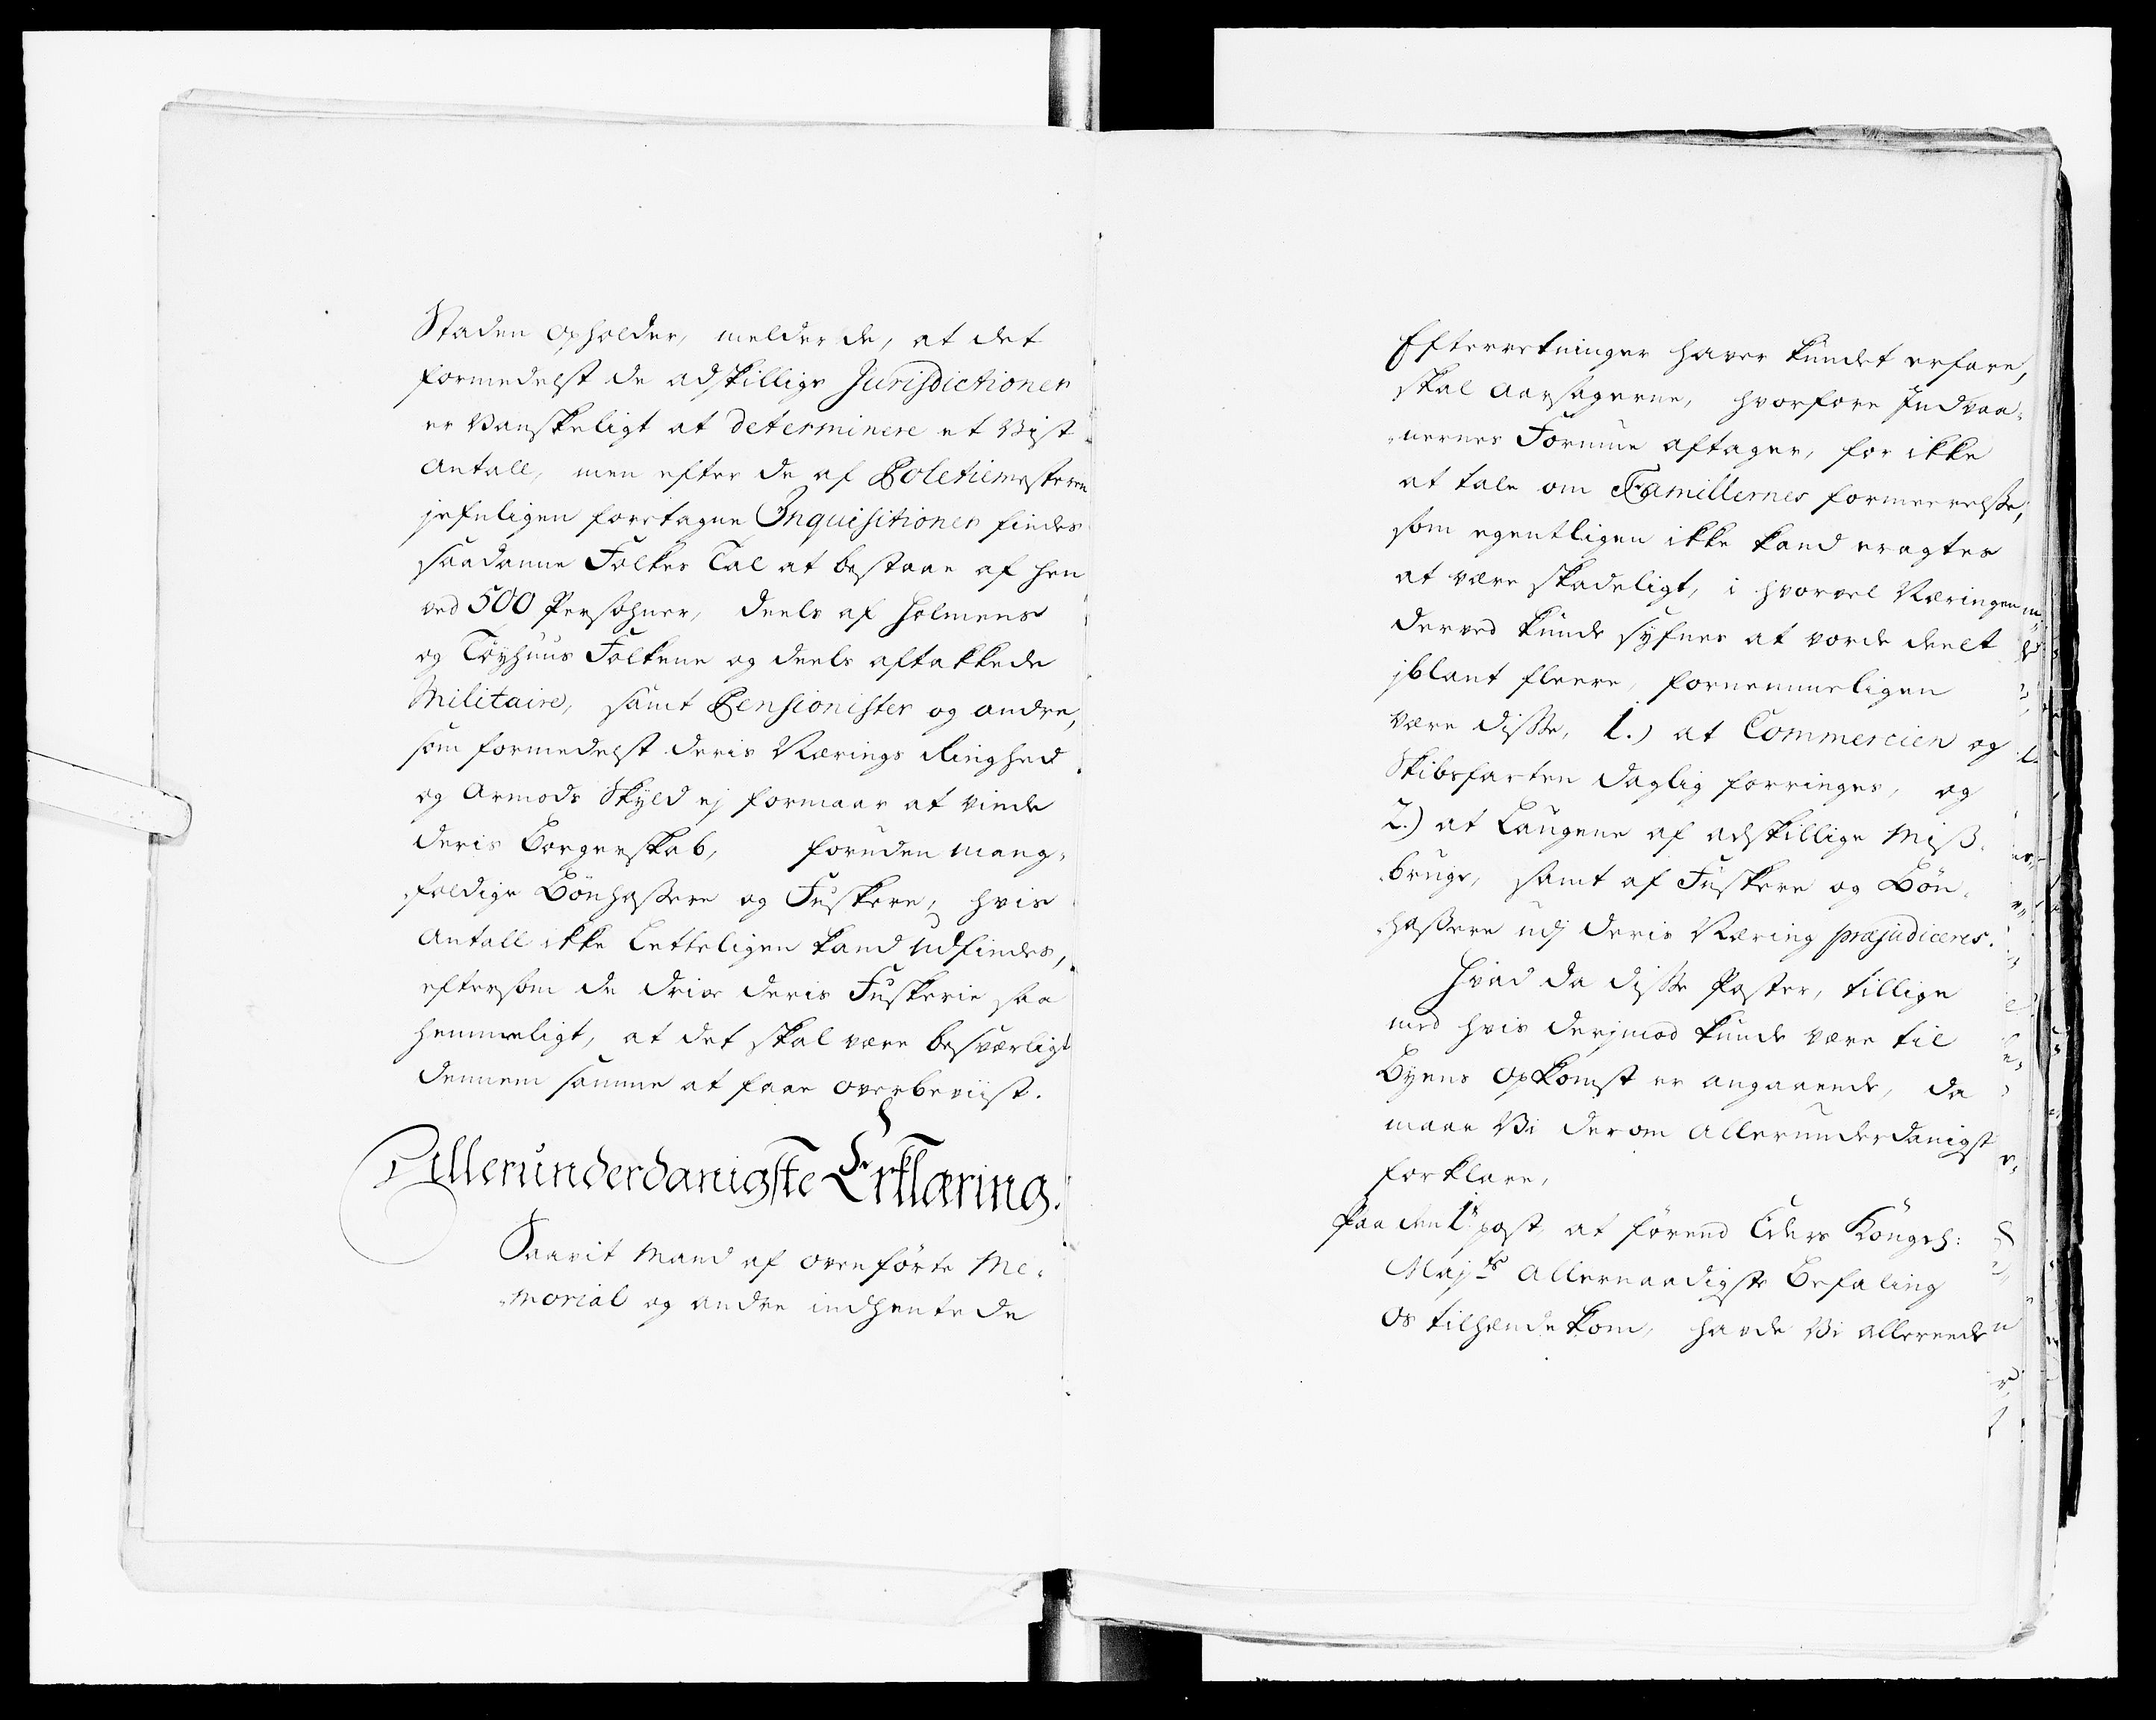 Staden opholder, melder de, at det
formedelst de adskillige Jurisdictioner
er Vanskeligt at determinere et Vist
Antall, men efter de af Poletiemesteren
jefnligen foretagne Inquisitioner findes
saadanne Folkes Tal at bestaae af hen
ved 500 Persohner, deels af Holmens
og Tøyhuus Folkene og deels aftakkede
Militaire, samt Pensionister og andre,
som formedelst deris Nærings Ringhed
og Armods Skyld ej formaar at vinde
deris Borgerskab, foruden mang-
foldige Bønhassere og Fuskere, hvis
Antall ikke Letteligen kand udfindes,
eftersom de drive deris Fuskerie saa
hemmeligt, at det skal være besværligt
dennem samme at faae overbeviist.
Allerunderdanigste Erklæring.
Saavit Mand af ovenførte Me-
-morial og andre indhentede
Efterretninger haver kundet erfare,
skal Aarsagerne, hvorfore Indvaa-
-nernes Formue aftager, for ikke
at tale om Familiernes formeerelse,
som egentligen ikke kand eragtes
at være skadeligt, i hvorvel Næringen
derved kunde syfnes at vorde deelt
jblant fleere, fornemmeligen
være disse, 1.) at Commercien og
Skibsfarten daglig forringes, og
2.) at Laugene af adskillige Miß-
-bruge, samt af Fuskere og Bøn-
-hassere udj deris Næring præjudiceres.
Hvad da disse Poster, tillige
med hvis derjmod kunde være til
Byens opkomst er angaaende, da
maae Vi derom Allerunderdanigst
forklare,
Paa den 1te post, at førend Eders Kongel:
Majts Allernaadigste Befaling
os tilhændekom, havde Vi allereede